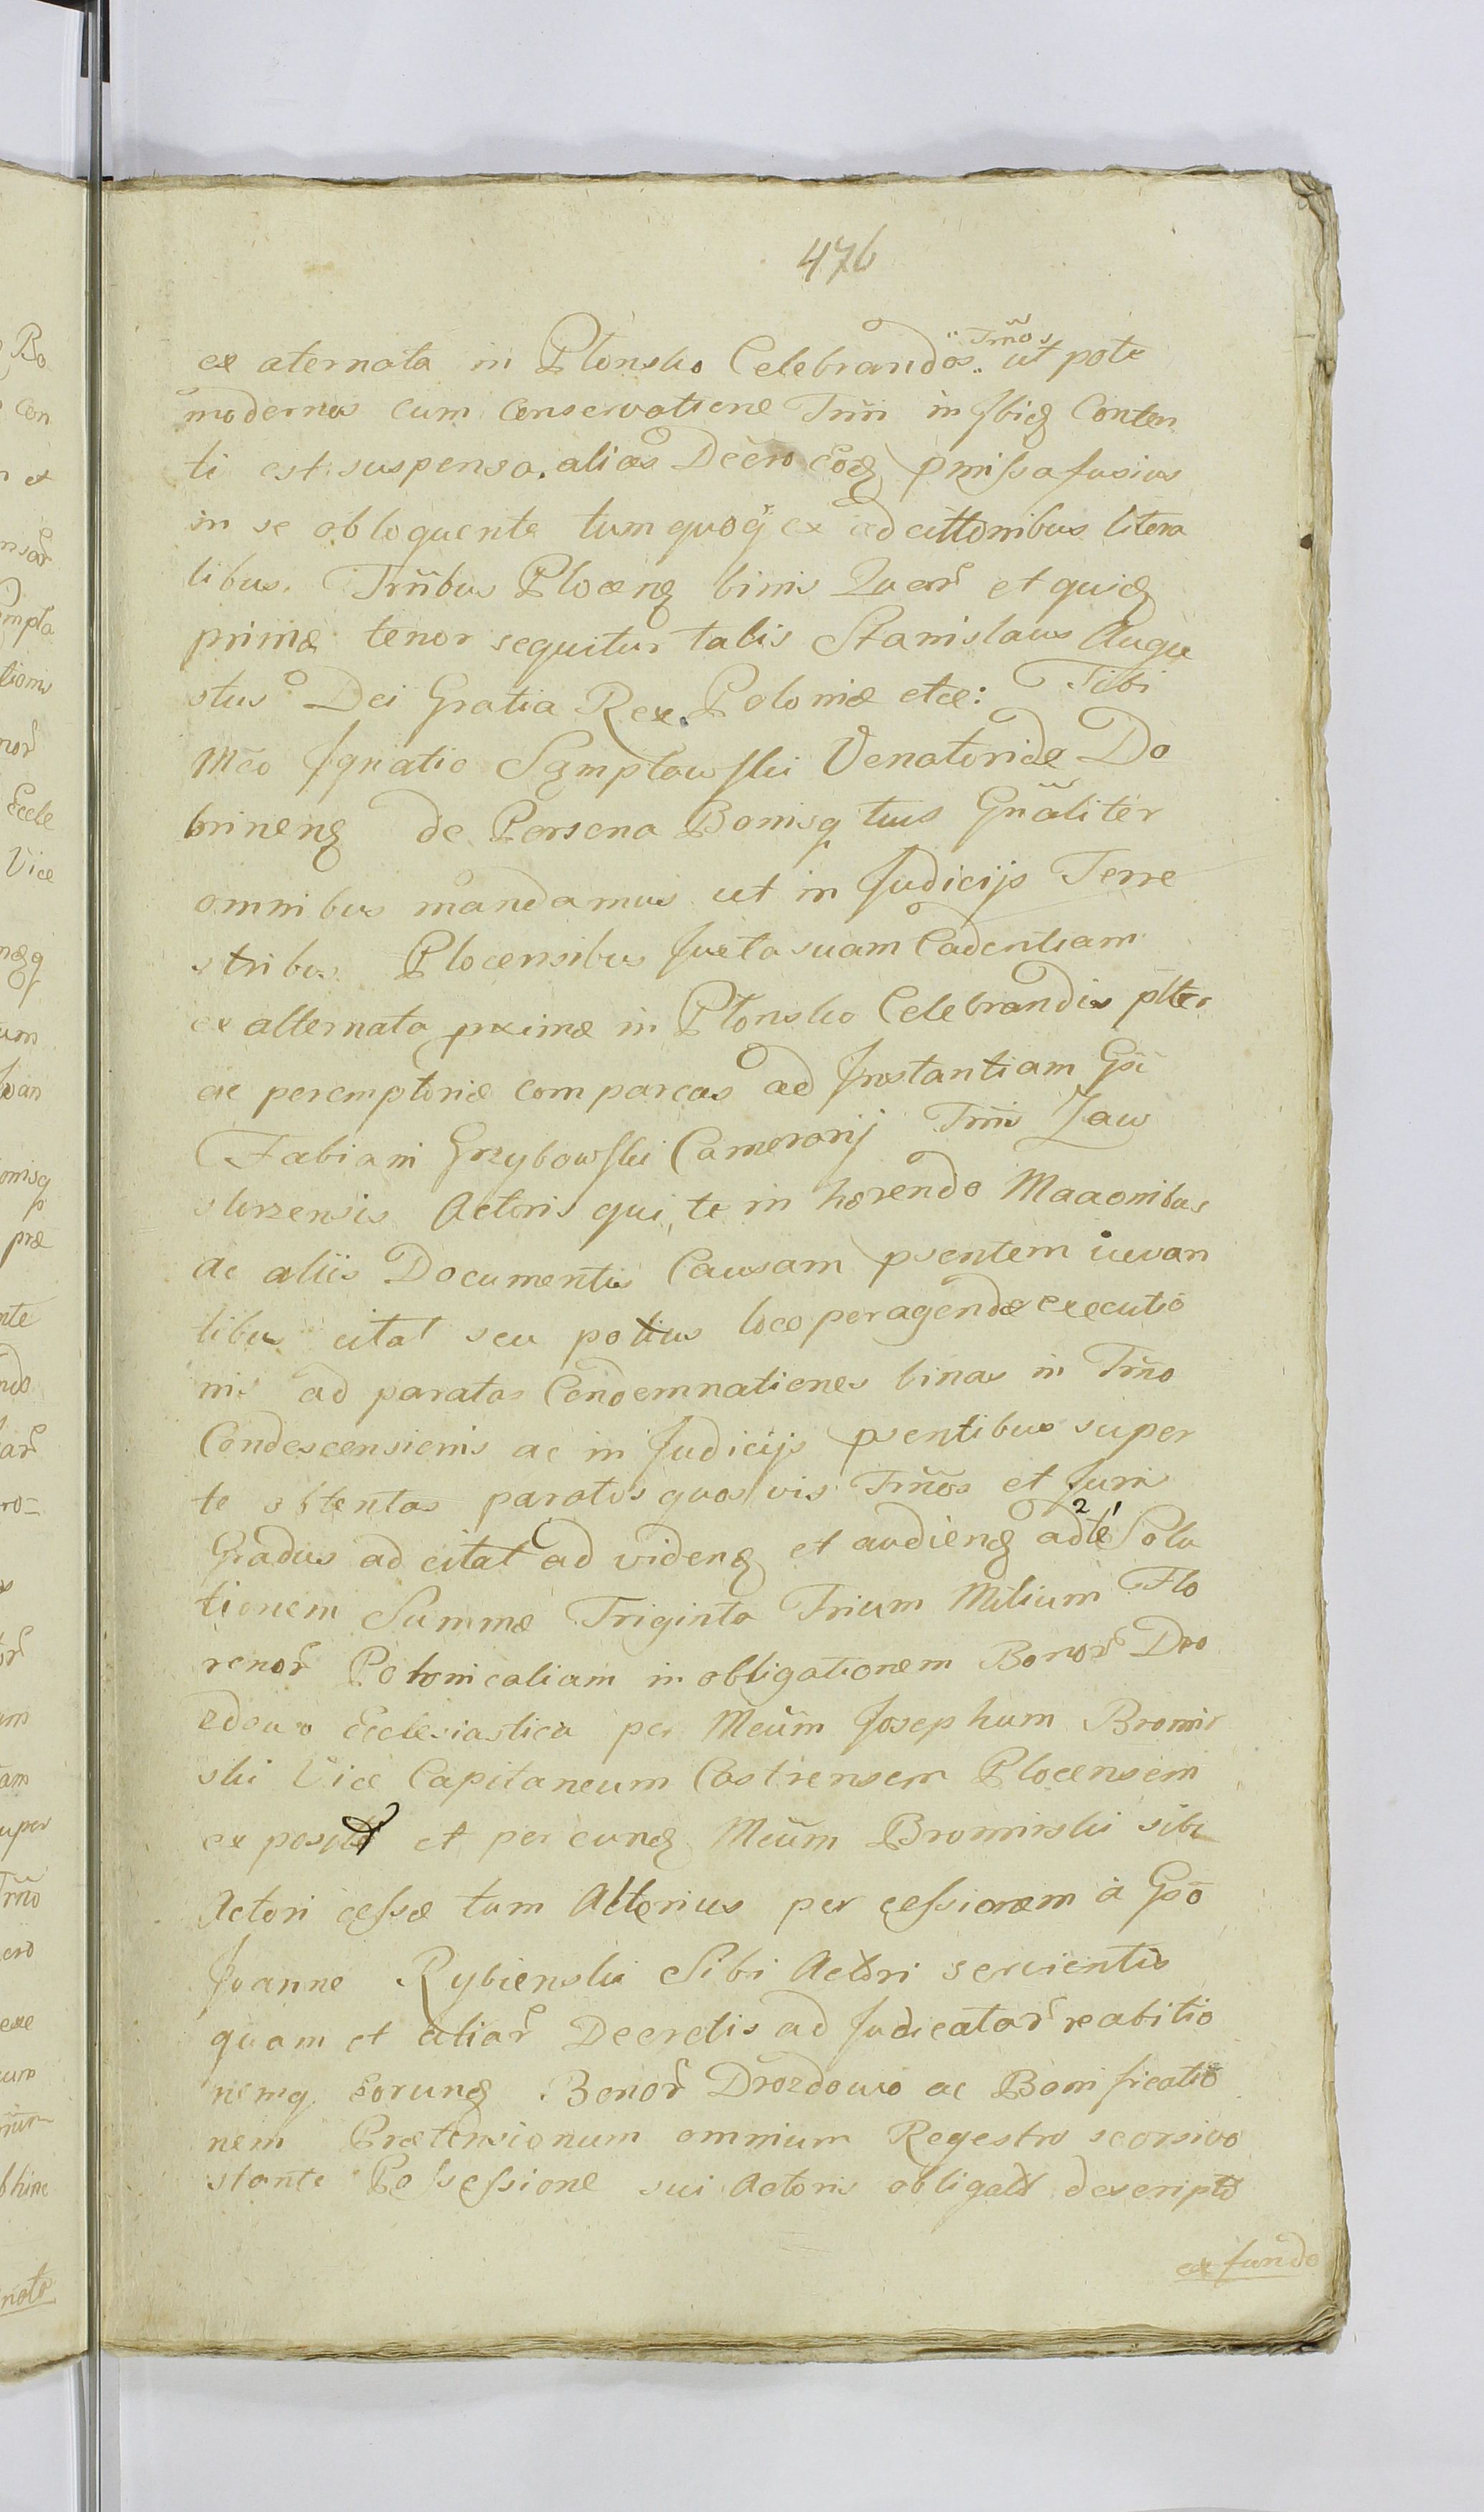 476
ex aternata in Płonsko Celebrandos Trños ut pote
modernos cum Conservatione Trñi in Ibiq Conten
ti est suspensa. alias Decro Eoq pmissa fusius
in se obloquente tum quoq ex ad cittonibus litera
libus. Trñibus Plocenq binis Quar et quiq
primæ tenor sequitur talis Stanislaus Augu
stus Dei Gratia Rex Poloniæ etce: Tibi
Mco Ignatio Sępłowski Venatoridæ Do
brinenq de Persona Bonisq tuis Gñaliter
omnibus mandamus ut in Judicijs Terre
stribus Plocensibus Juxta suam Cadentiam
ex alternata pximæ in Płonsko Celebrandis plter
ac peremptoriæ compareas ad Instantiam Gsi
Fabiani Grzybowski Camerarij Trñi Zaw
skrzensis Actoris qui te in hærendo Maaonibus
ac aliis Documentis Causam psentem iuvan
tibus citat seu potius loco peragendæ executio
nis ad paratas Condemnationes binas in Trño
Condescensionis ac in Judicijs psentibus super
te obtentas paratos quos vis Trños et Juris
Gradus ad citat ad videnq et audienq ad te Solu
tionem Summæ Triginta Trium Milium Flo
renor Polonicaliam in obligationem Bonor Dro
zdowo Ecclesiastica per Mcum Josephum Bromir
ski Vice Capitaneum Castrensem Plocensem
ex posit et per eunq Mcum Bromirski sibi
Actori cessæ tum Alterius per cessionem à Gso
Joanne Rybienski Sibi Actori servientis
quam et aliar Decretis ad Judicatar reabitio
nemq Eorunq Bonor Drozdowo ac Bonificatio
nem Prætensionum omnium Regestro seorsivo
stante Possessione sui Actoris obligato descripto
ex fundo